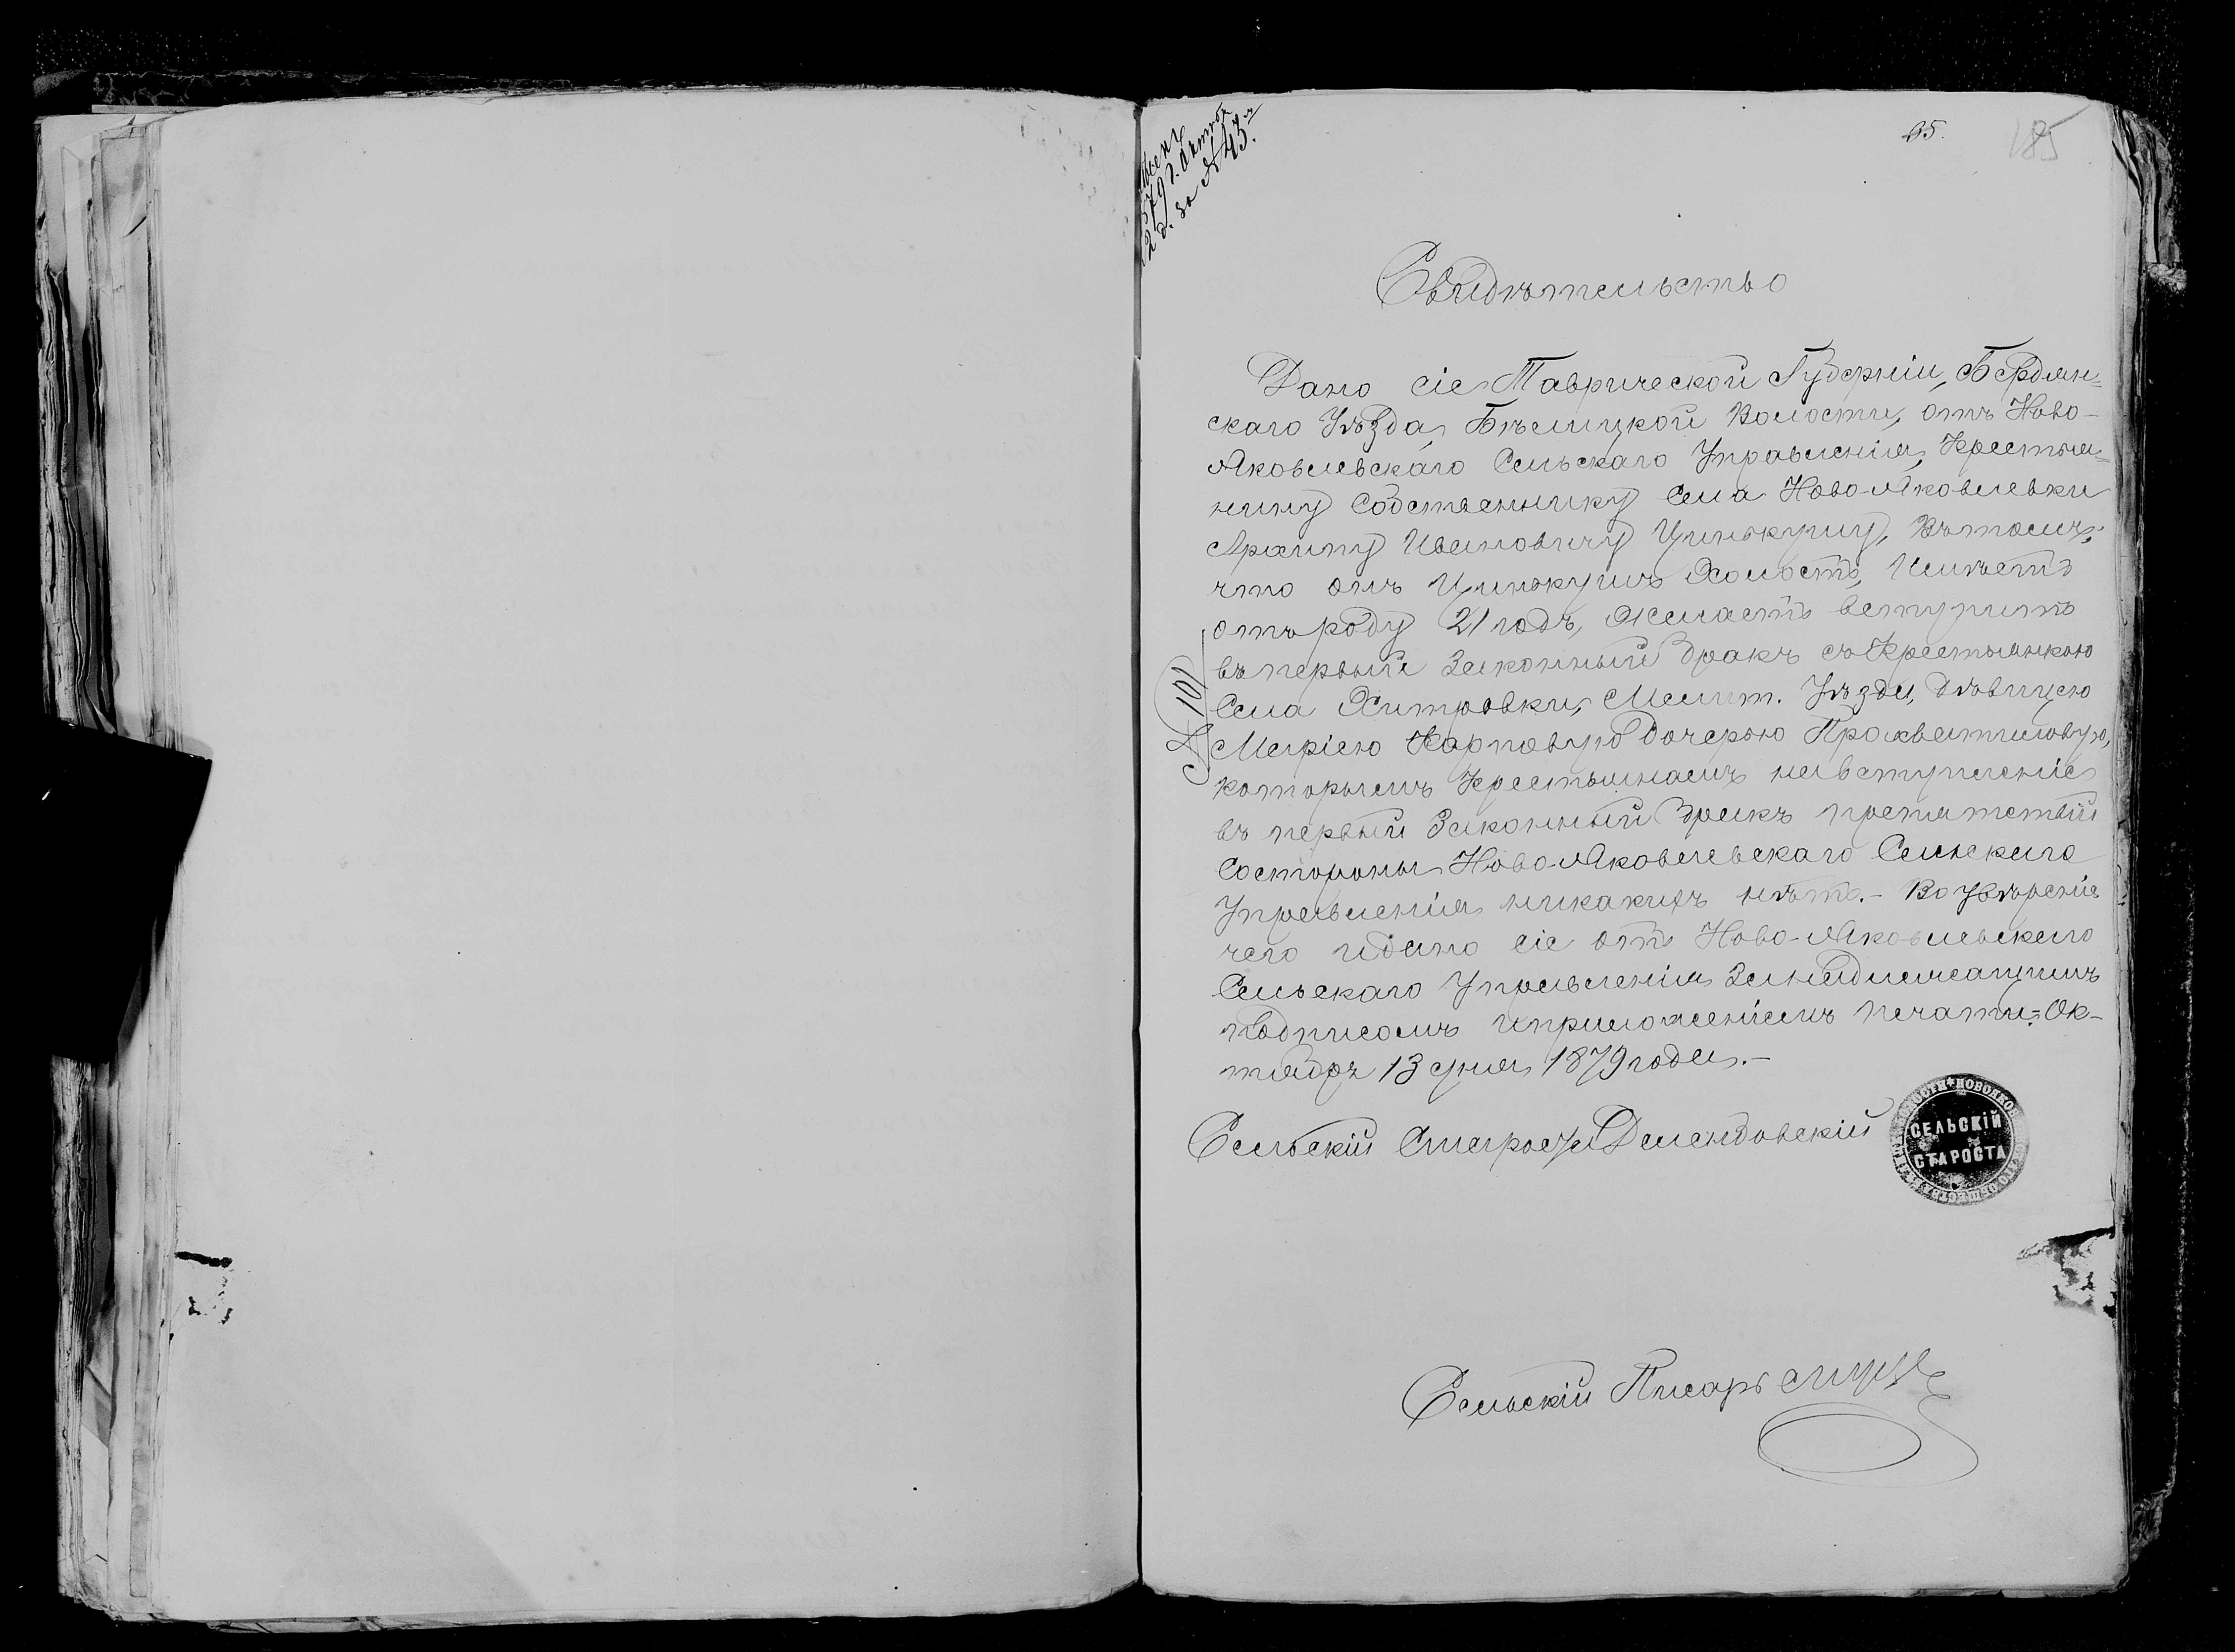 65.
185
1879 г. Октяб.
за № 43.
Свидѣтельство
Дано сіе Таврической Губерніи, Бердян=
скаго Уѣзда, Бѣлицкой Волости, отъ Ново-
Яковлевскаго Сельскаго Управленія, Крестья=
нину Собственнику Села Ново-Яковлевки
Архипу Ивановичу Цинькушу, Въ томъ,
что онъ Цинькушъ Холостъ, Имѣетъ
отъ роду 21 годъ, Желаетъ вступить
въ первый Законный бракъ съ Крестьянкою
№ 101
Села Хитровки, Мелит. Уѣзда, дѣвицею
Маріею Карповую дочерью
которымъ Крестьянамъ на вступленіе
въ первый Законный бракъ препятствій
Состороны Ново-Яковлевскаго Сельскаго
Управленія никакихъ нѣтъ.- Во увѣреніе
чего и дано сіе отъ Ново-Яковлевскаго
Сельскаго Управленія За надлежащимъ
подписомъ и приложеніемъ печати. Ок-
тябрь 13 дня 1879 года.-
Сельскій Староста
СЕЛЬСКІЙ
СТАРОСТА
Сельскій Писарь